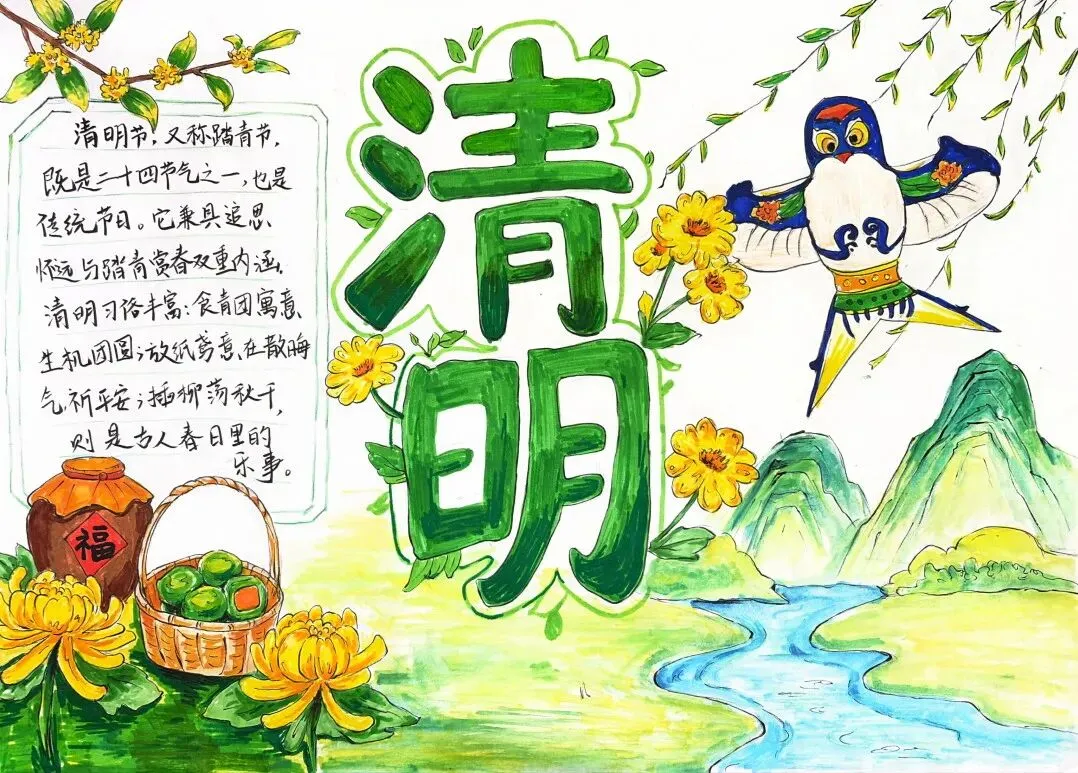 清明
清明节，又称踏青节，
既是二十四节气之一，也是
传统节日。它兼具追思
怀远与踏青赏春双重内涵，
清明习俗丰富：食青团寓意
生机团圆；放纸鸢意在散晦
气，祈平安；插柳荡秋千，
则是古人春日里的
乐事。
福